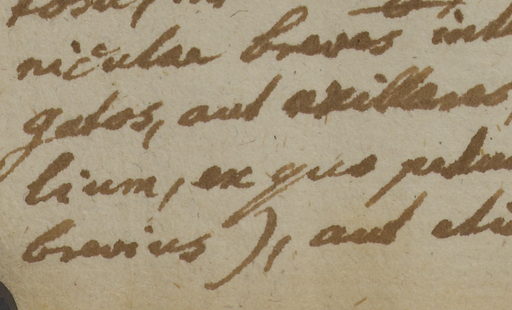 niculae breves int
gatos, aut axillares,
lium, ex quo pedun
brevius), aut eti